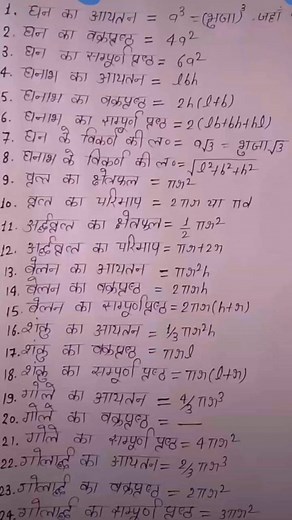 1. घन का आयतन = a³ = (भुजा)³ जहाँ
2. घन का वक्रपृष्ठ = 4a²
3. घन का सम्पूर्ण पृष्ठ = 6a²
4. घनाभ का आयतन = lbh
5. घनाभ का वक्रपृष्ठ = 2h(l+b)
6. घनाभ का सम्पूर्ण पृष्ठ = 2(lb+bh+hl)
7. घन के विकर्ण की ल० = a√3 = भुजा√3
8. घनाभ के विकर्ण की ल० = √l²+b²+h²
9. वृत्त का क्षेत्रफल = πr²
10. वृत्त का परिमाप = 2πr या πd
11. अर्द्धवृत्त का क्षेत्रफल = 1/2 πr²
12. अर्द्धवृत्त का परिमाप = πr+2r
13. बेलन का आयतन = πr²h
14. बेलन का वक्रपृष्ठ = 2πrh
15. बेलन का सम्पूर्ण पृष्ठ = 2πr(h+r)
16. शंकु का आयतन = 1/3 πr²h
17. शंकु का वक्रपृष्ठ = πrl
18. शंकु का सम्पूर्ण पृष्ठ = πr(l+r)
19. गोले का आयतन = 4/3 πr³
20. गोले का वक्रपृष्ठ = —
21. गोले का सम्पूर्ण पृष्ठ = 4πr²
22. गोलार्द्ध का आयतन = 2/3 πr³
23. गोलार्द्ध का वक्रपृष्ठ = 2πr²
24. गोलार्द्ध का सम्पूर्ण पृष्ठ = 3πr²